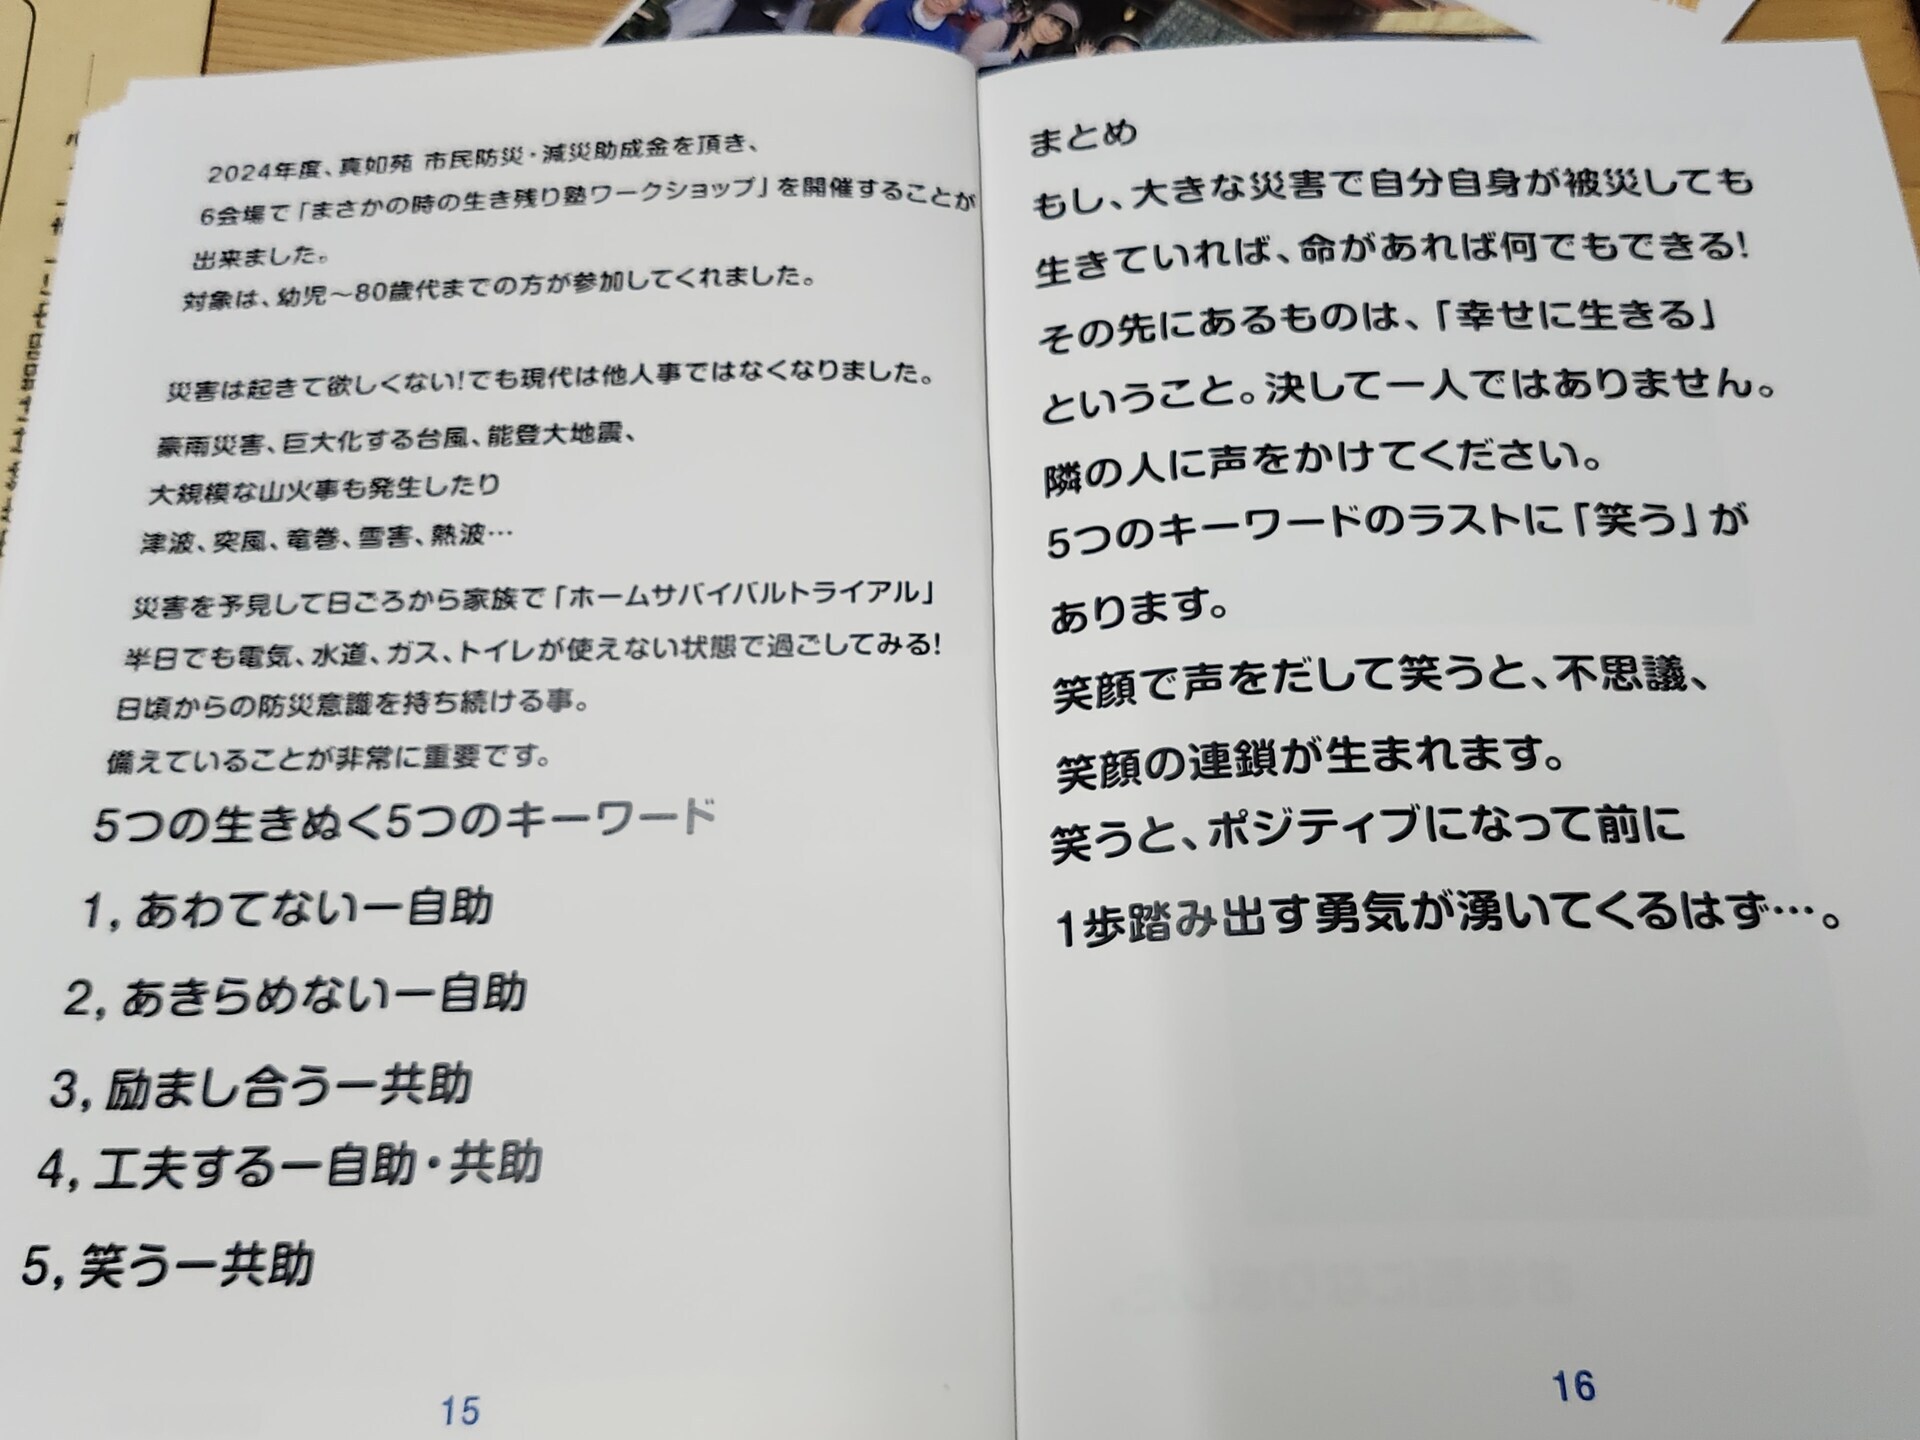 2024年度、真如苑 市民防災・減災助成金を頂き、
6会場で「まさかの時の生き残り塾ワークショップ」を開催することが
出来ました。
対象は、幼児～80歳代までの方が参加してくれました。
災害は起きて欲しくない!でも現代は他人事ではなくなりました。
豪雨災害、巨大化する台風、能登大地震、
大規模な山火事も発生したり
津波、突風、竜巻、雪害、熱波…
災害を予見して日ごろから家族で「ホームサバイバルトライアル」
半日でも電気、水道、ガス、トイレが使えない状態で過ごしてみる!
日頃からの防災意識を持ち続ける事。
備えていることが非常に重要です。
5つの生きぬく5つのキーワード
1,あわてないー自助
2,あきらめないー自助
3,励まし合うー共助
4,工夫するー自助・共助
5,笑うー共助
15
まとめ
もし、大きな災害で自分自身が被災しても
生きていれば、命があれば何でもできる!
その先にあるものは、「幸せに生きる」
ということ。決して一人ではありません。
隣の人に声をかけてください。
5つのキーワードのラストに「笑う」が
あります。
笑顔で声をだして笑うと、不思議、
笑顔の連鎖が生まれます。
笑うと、ポジティブになって前に
1歩踏み出す勇気が湧いてくるはず…。
16